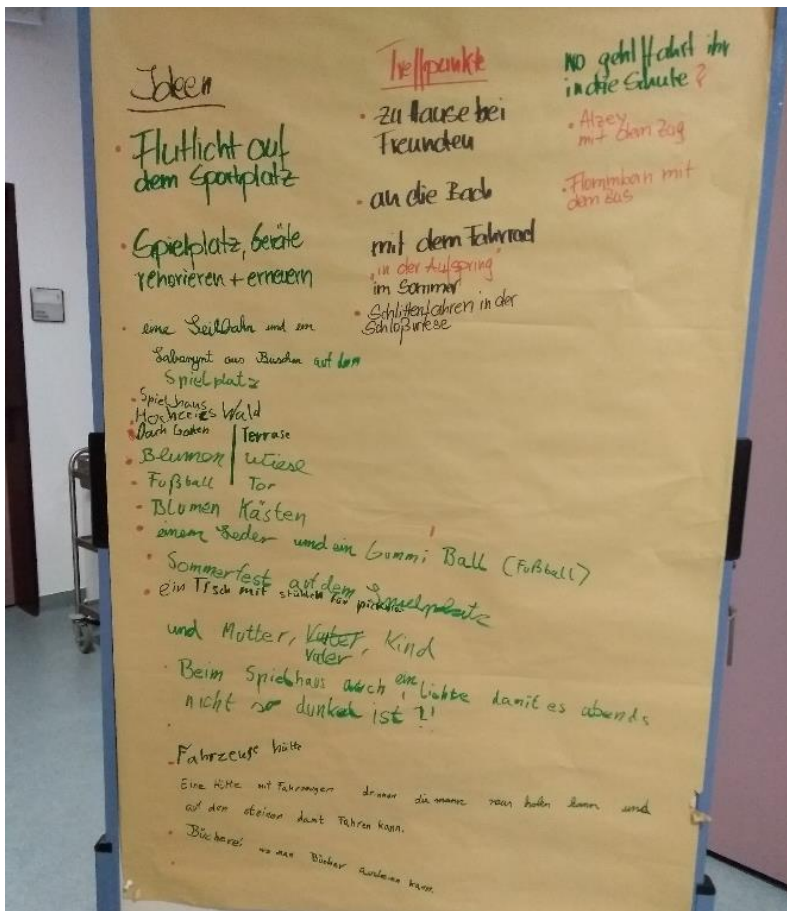 Ideen
• Flutlicht auf
dem Sportplatz
• Spielplatz, Geräte
renovieren + erneuern
• eine Seilbahn und ein
Labarynt aus Buschen auf dem
Spielplatz
• Spielhaus
• Wald
• Dach Garten | Terrasse
• Blumen | Wiese
• Fußball | Tor
• Blumen Kästen
• einem Leder und ein Gummi Ball (Fußball)
• Sommerfest auf dem Spielplatz
• ein Tisch mit stühlen für
und Mutter, Vater, Kind
• Beim Spielhaus auch ein Lichte damit es abends
nicht so dunkel ist ?!
• Fahrzeuge hütte
Eine Hütte mit Fahrzeugen drinnen die manne raus holen kann und
auf den steinen damt Fahren kann.
• Bücherei wo man Bücher ausleihen kann.
Treffpunkte
• zu Hause bei
Freunden
• an die Bach
mit dem Fahrrad
"in der Aufspring"
im Sommer
• Schlittenfahren in der
Schloßwiese
wo geht/fahrt ihr
in die Schule?
• Alzey
mit dem Zug
• Flommban mit
dem Bus